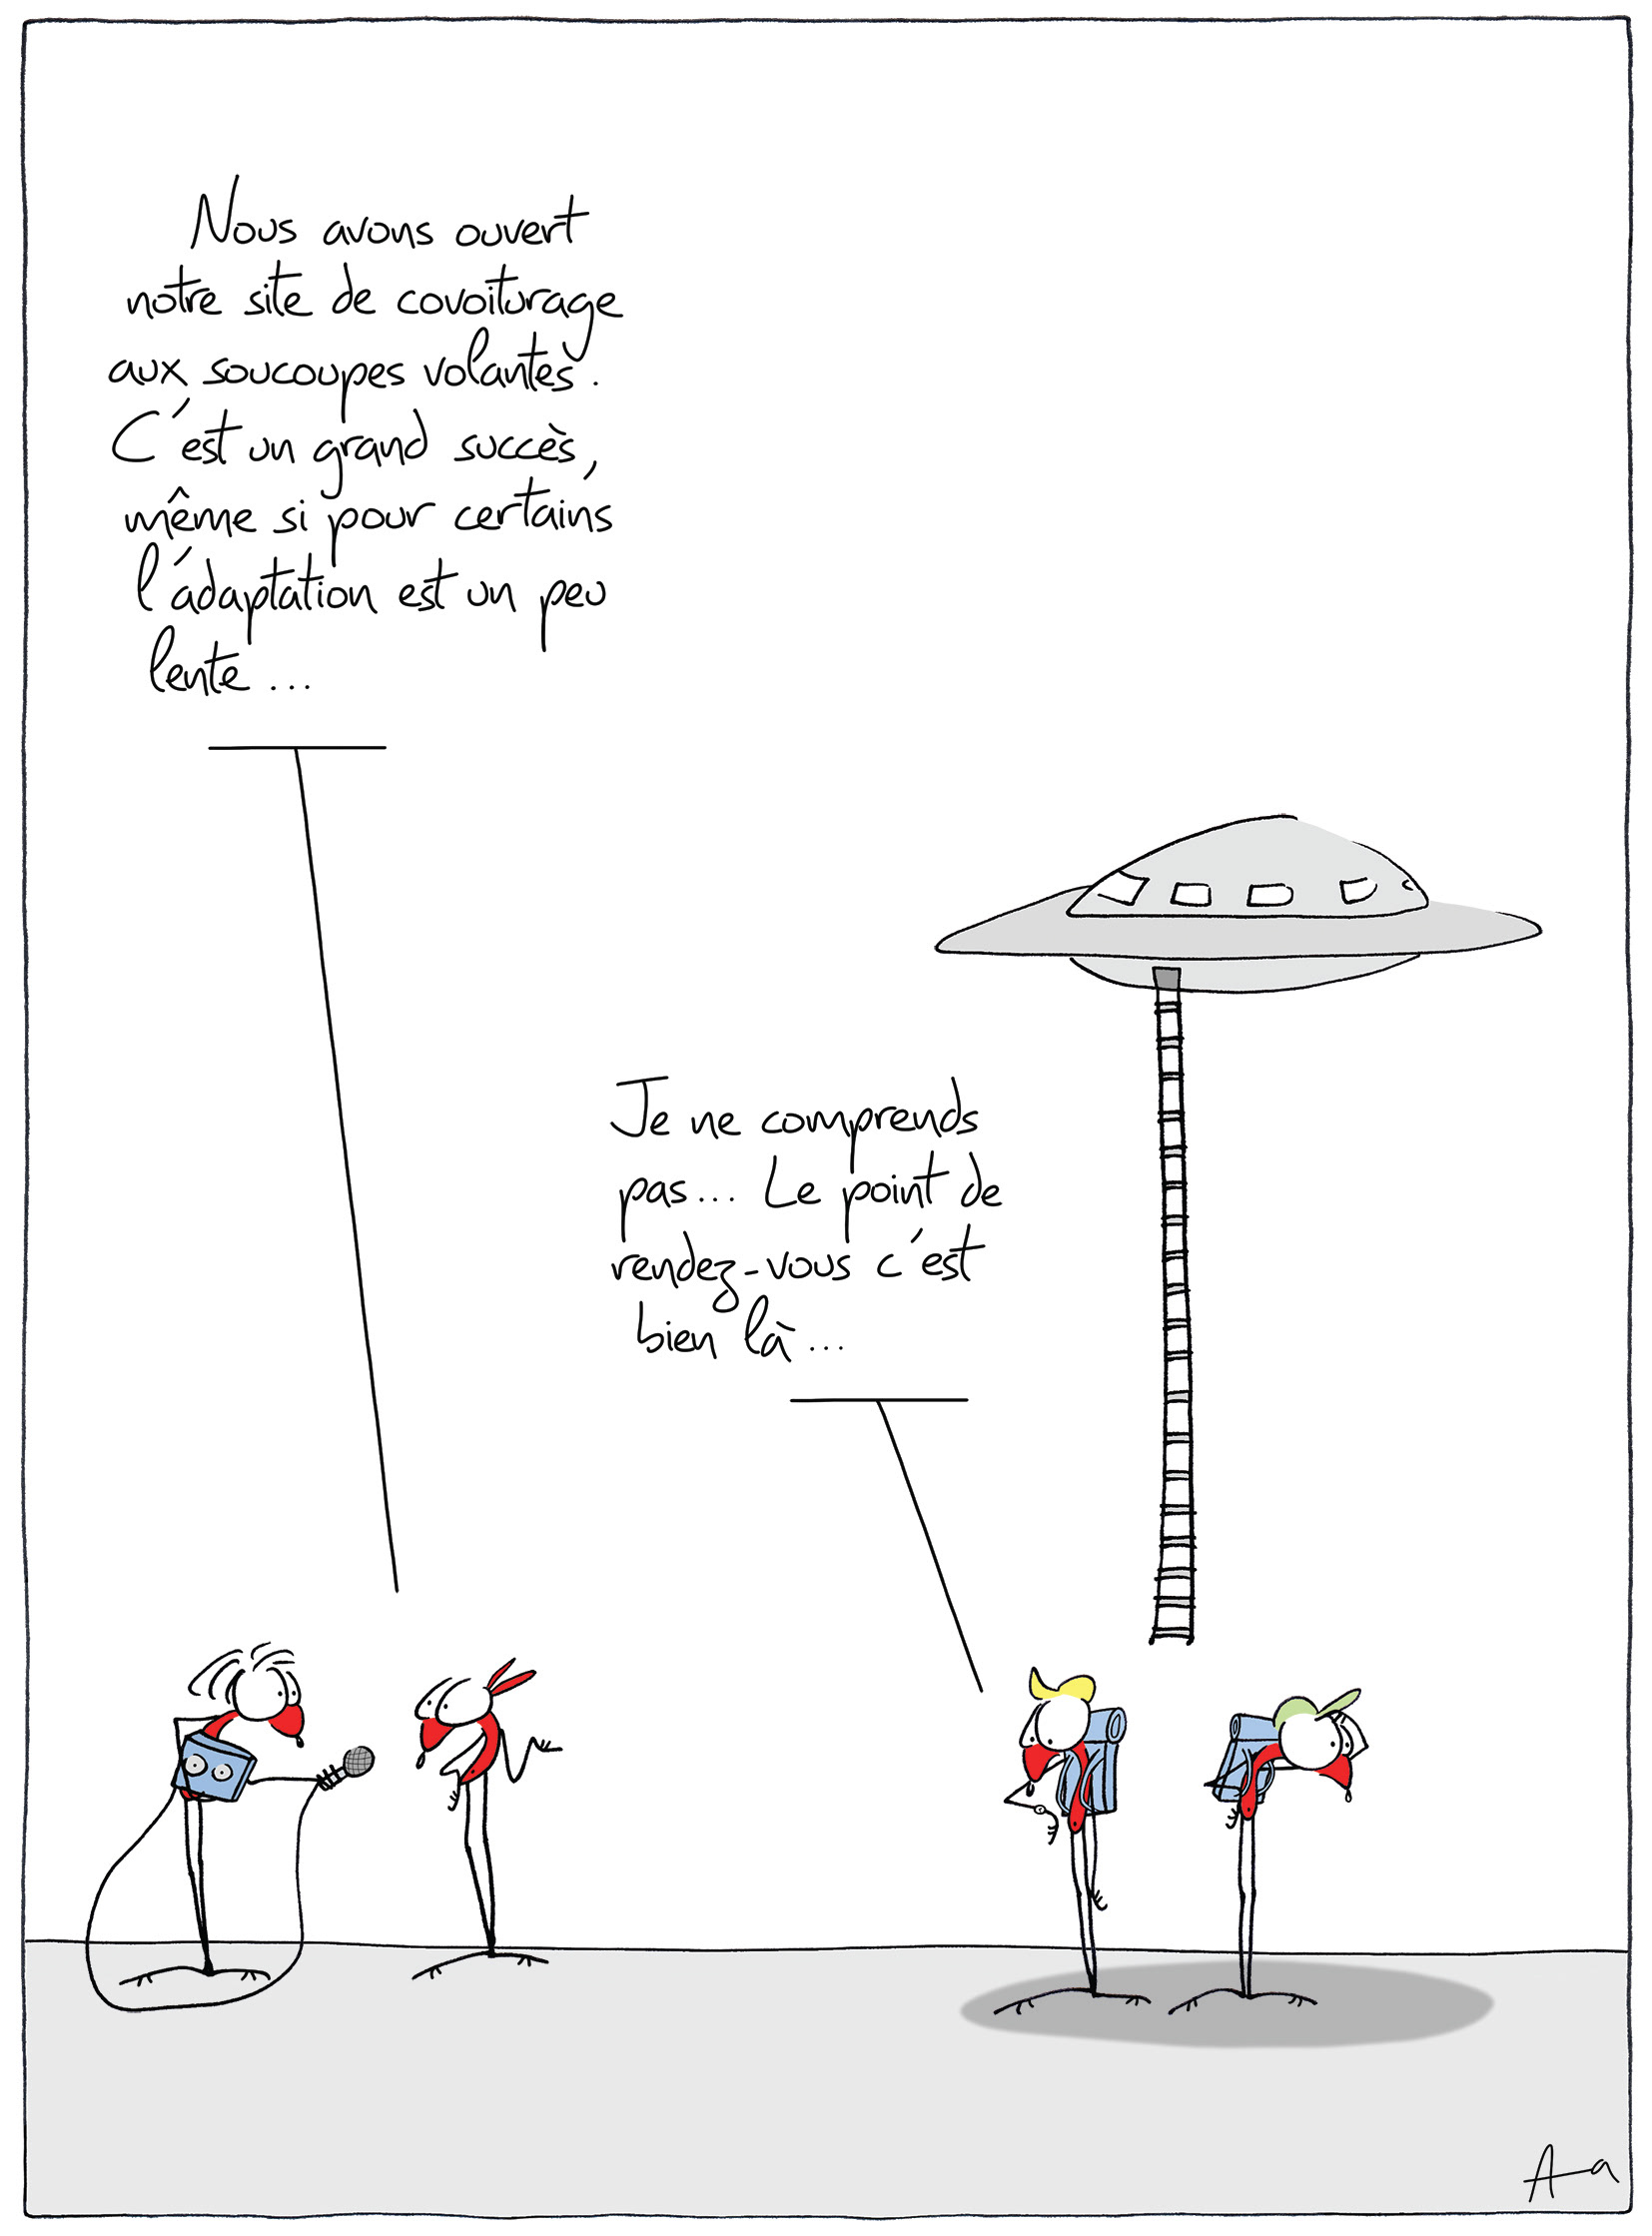 Nous avons ouvert
notre site de covoiturage
aux soucoupes volantes.
C'est un grand succès,
même si pour certains
l'adaptation est un peu
lente...
Je ne comprends
pas... Le point de
rendez-vous c'est
bien là...